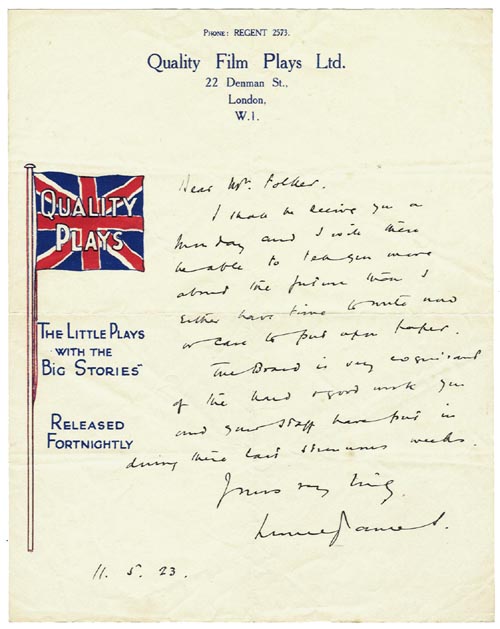 PHONE: REGENT 2573.
Quality Film Plays Ltd.
22 Denman St.,
London,
W.1.
QUALITY
PLAYS
"THE LITTLE PLAYS
WITH THE
BIG STORIES"
RELEASED
FORTNIGHTLY
Dear Mr.
I shall be seeing you on
Monday and I will then
be able to tell you more
about the future than I
Either have time to write now
or care to put upon paper.
The Board is very cognisant
of the hard & good work you
and your staff have put in
during these last strenuous weeks.
Yours very truly,
11. 5. 23.